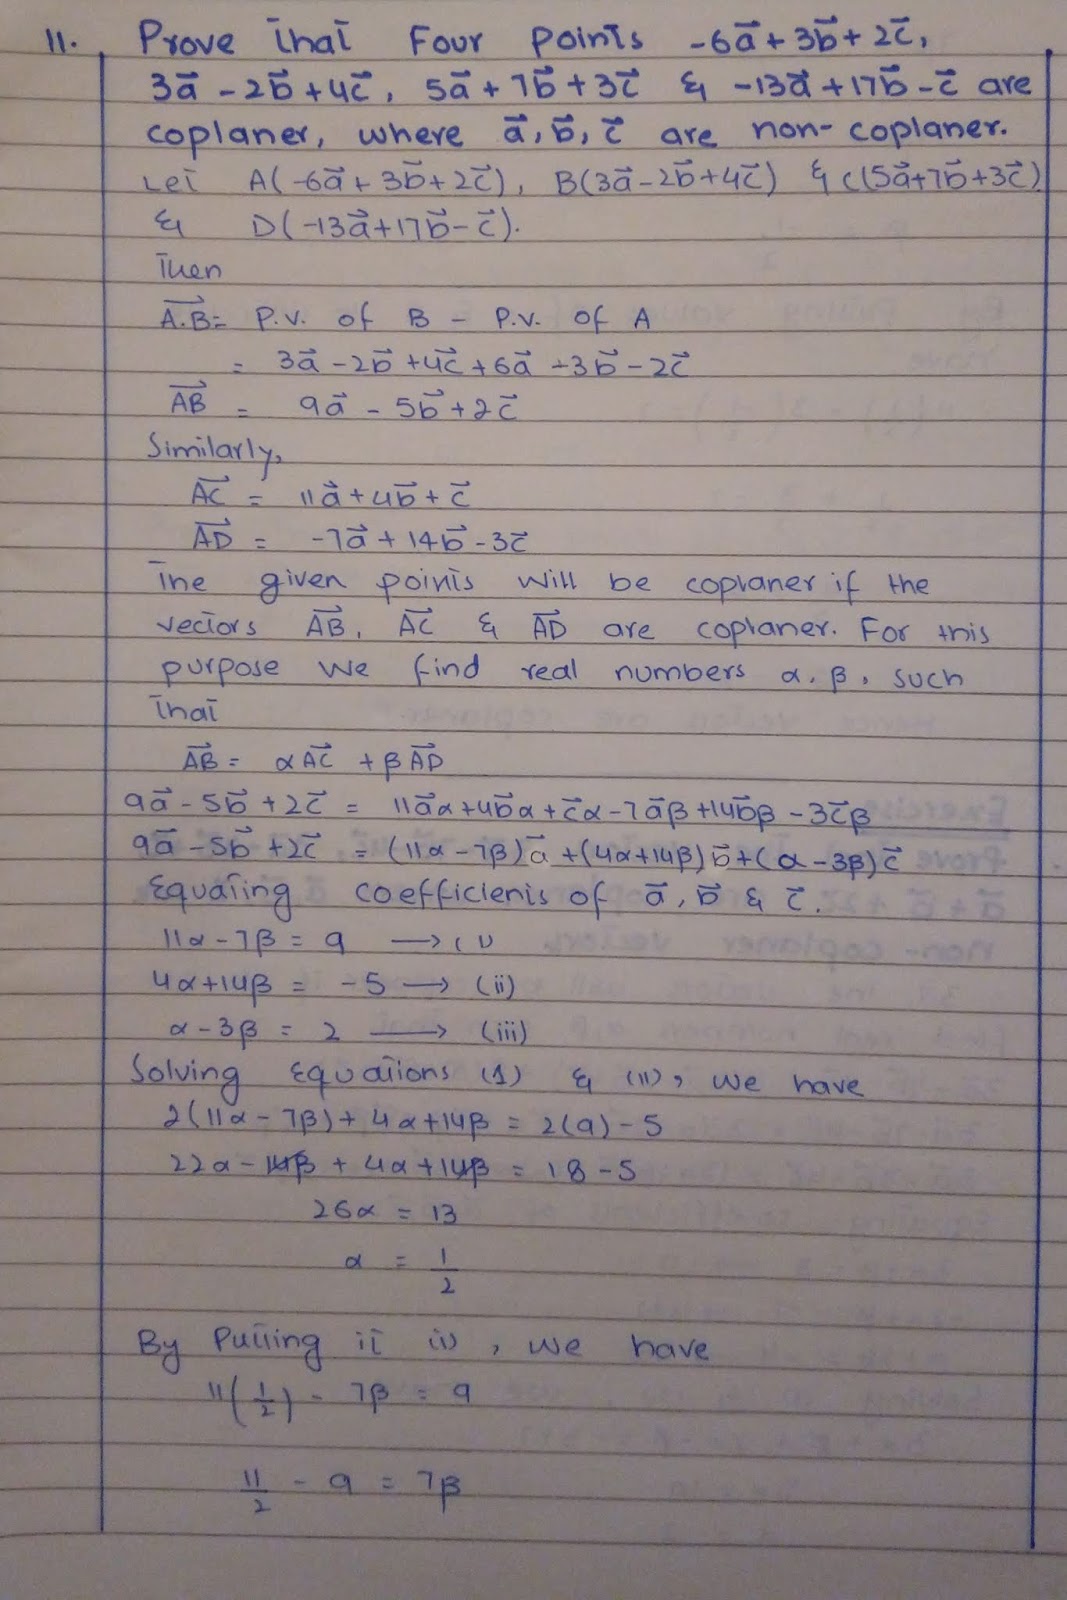 11. Prove that Four points -6a⃗ + 3b⃗ + 2c⃗,
3a⃗ - 2b⃗ + 4c⃗, 5a⃗ + 7b⃗ + 3c⃗ & -13a⃗ + 17b⃗ - c⃗ are
coplaner, where a⃗, b⃗, c⃗ are non-coplaner.
Let A(-6a⃗ + 3b⃗ + 2c⃗), B(3a⃗ - 2b⃗ + 4c⃗) & C(5a⃗ + 7b⃗ + 3c⃗)
& D(-13a⃗ + 17b⃗ - c⃗).
Then
A.B⃗ = P.V. of B - P.V. of A
= 3a⃗ - 2b⃗ + 4c⃗ + 6a⃗ - 3b⃗ - 2c⃗
AB⃗ = 9a⃗ - 5b⃗ + 2c⃗
Similarly,
AC⃗ = 11a⃗ + 4b⃗ + c⃗
AD⃗ = -7a⃗ + 14b⃗ - 3c⃗
The given points will be coplaner if the
vectors AB⃗, AC⃗ & AD⃗ are coplaner. For this
purpose we find real numbers α, β, such
that
AB⃗ = αAC⃗ + βAD⃗
9a⃗ - 5b⃗ + 2c⃗ = 11a⃗α + 4b⃗α + c⃗α - 7a⃗β + 14b⃗β - 3c⃗β
9a⃗ - 5b⃗ + 2c⃗ = (11α - 7β)a⃗ + (4α + 14β)b⃗ + (α - 3β)c⃗
Equating coefficients of a⃗, b⃗ & c⃗.
11α - 7β = 9 → (i)
4α + 14β = -5 → (ii)
α - 3β = 2 → (iii)
Solving Equations (1) & (11), we have
2(11α - 7β) + 4α + 14β = 2(9) - 5
22α - 14β + 4α + 14β = 18 - 5
26α = 13
α = 1/2
By Putting it (i), we have
11(1/2) - 7β = 9
11/2 - 9 = 7β